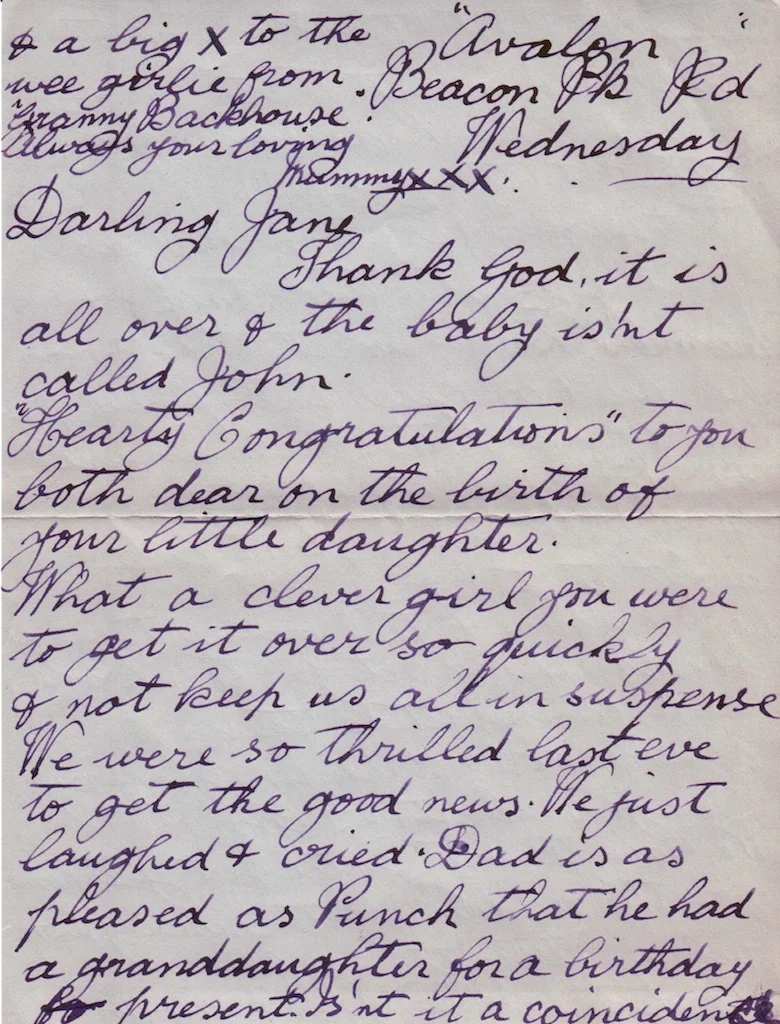 & a big X to the
wee girlie from
"Granny Backhouse".
Always your loving
Mummy XXX.
"Avalon"
Beacon Pk Rd
Wednesday
Darling Jane
Thank God, it is
all over & the baby is'nt
called John.
"Hearty Congratulations" to you
both dear on the birth of
your little daughter.
What a clever girl you were
to get it over so quickly
& not keep us all in suspense
We were so thrilled last eve
to get the good news. We just
laughed & cried. Dad is as
pleased as Punch that he had
a granddaughter for a birthday
present. Is'nt it a coincidence